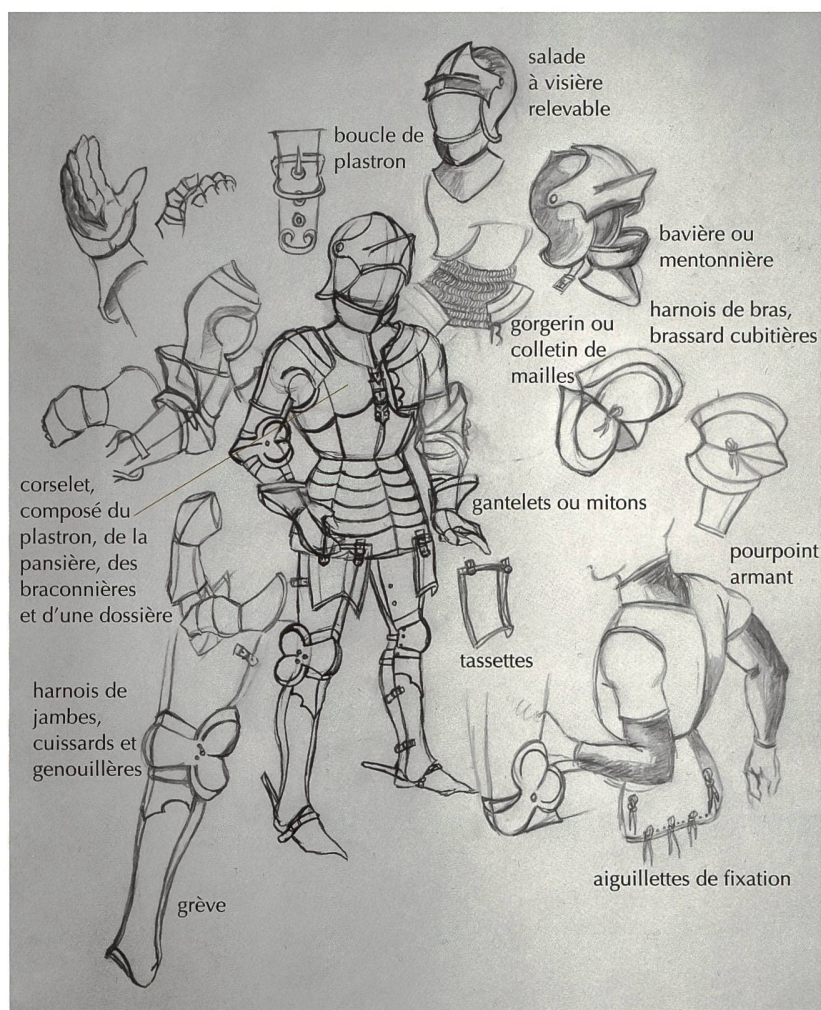 salade
à visière
relevable
boucle de
plastron
bavière ou
mentonnière
harnois de bras,
brassard cubitières
gorgerin ou
colletin de
mailles
corselet,
composé du
plastron, de la
pansière, des
braconnières
et d'une dossière
gantelets ou mitons
pourpoint
armant
tassettes
harnois de
jambes,
cuissards et
genouillères
aiguillettes de fixation
grève